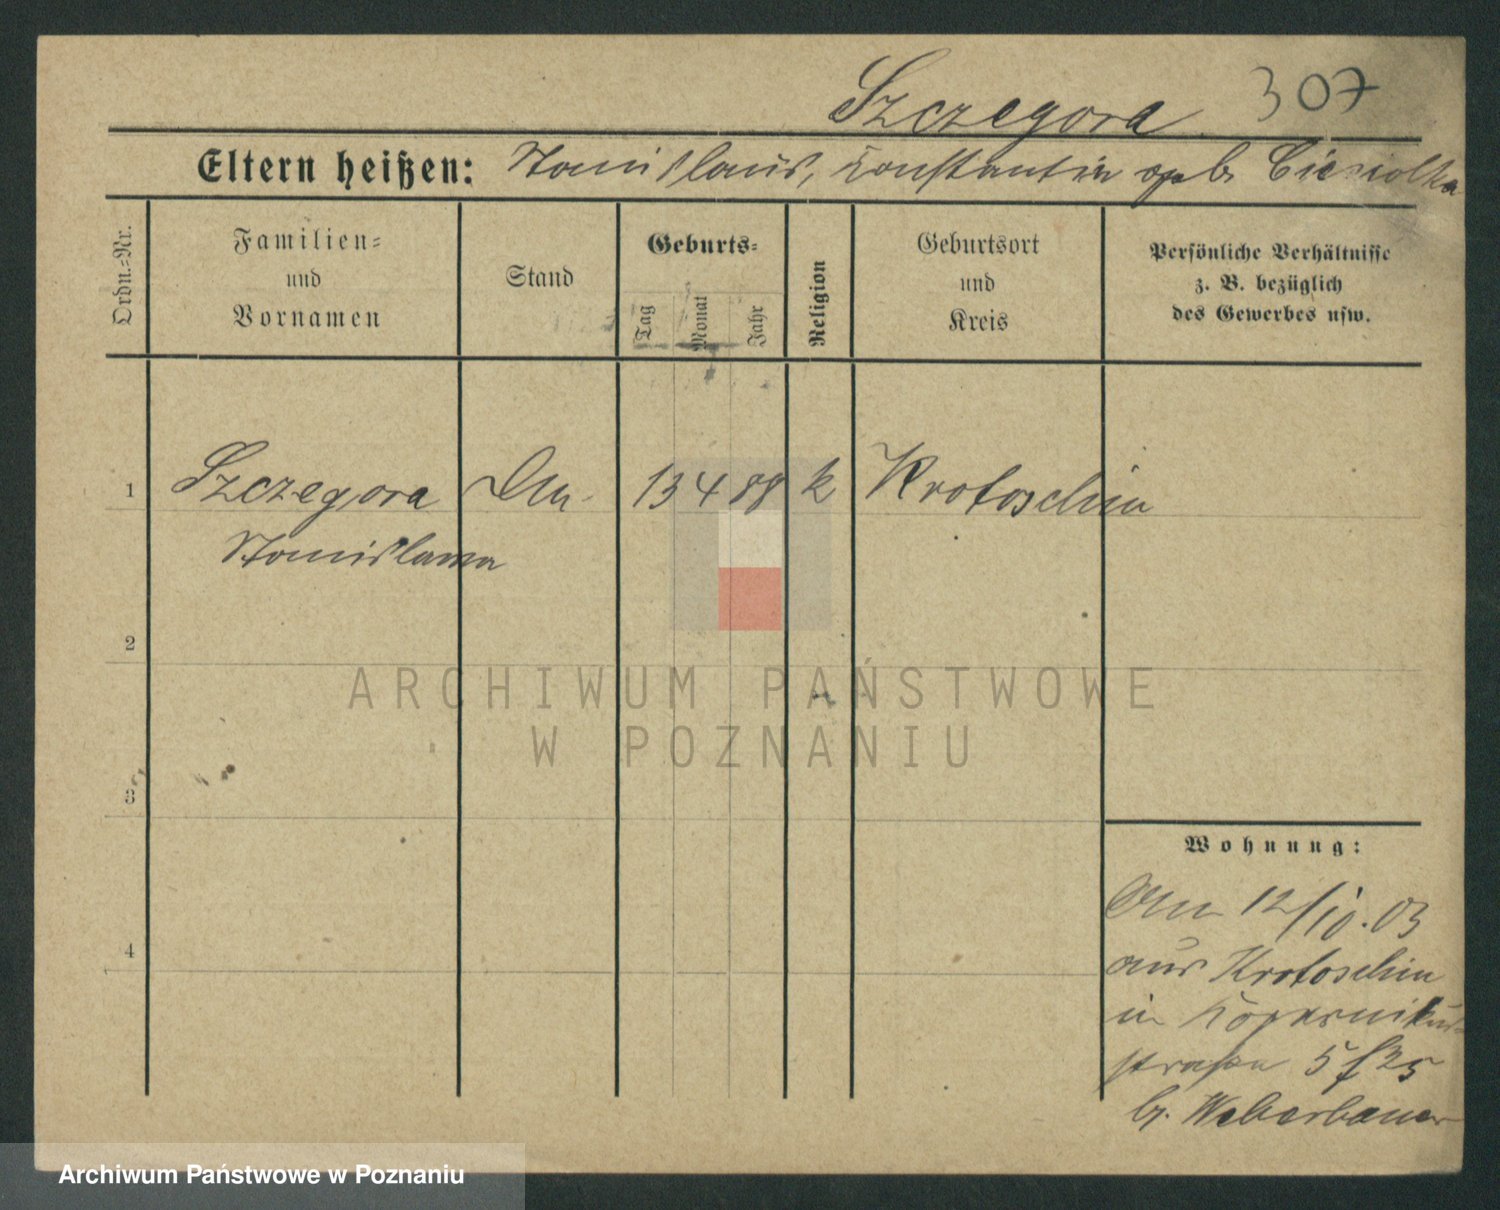 Szczegora 307
Eltern heißen: Stanislaus, Konstantin geb. Ciesiolka
Ordn.-Nr.
Familien-
und
Vornamen
Stand
Geburts-
Tag
Monat
Jahr
Religion
Geburtsort
und
Kreis
Persönliche Verhältnisse
z. B. bezüglich
des Gewerbes usw.
1 Szczegora 13 4 88 k Krotoschin
Stanislawa
2
ARCHIWUM PAŃSTWOWE
W POZNANIU
3
Wohnung:
4
12/10.03
aus Krotoschin
in Kopernikus
straße 5
b. Weberbauer
Archiwum Państwowe w Poznaniu